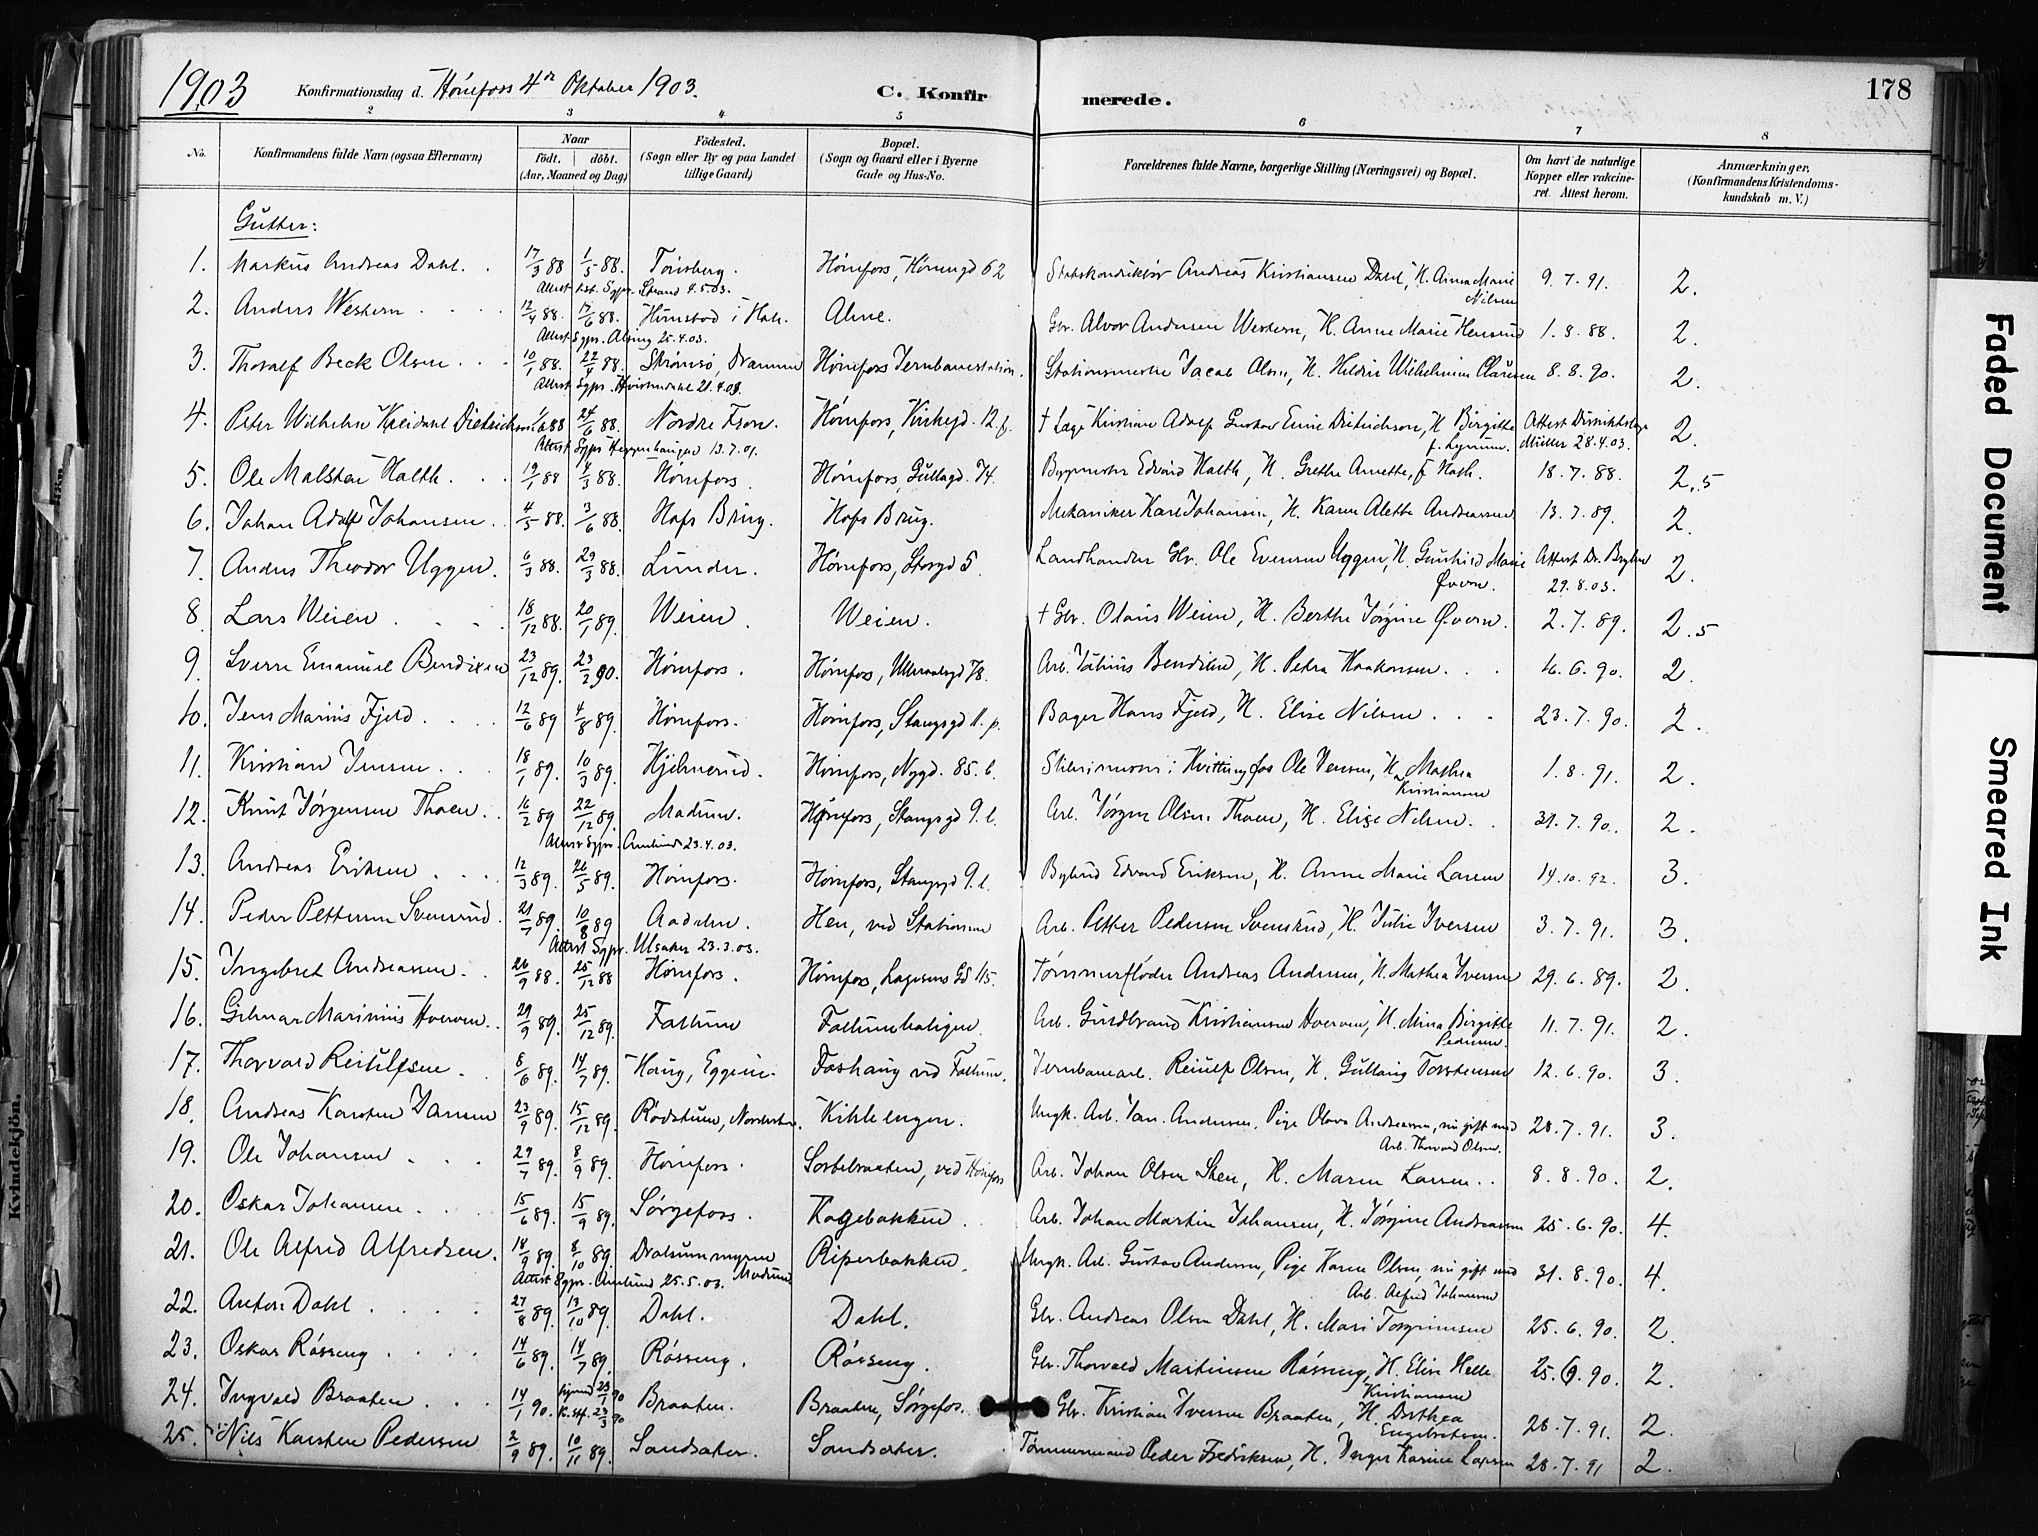 1903 Konfirmationsdag d. Hønefoss 4de Oktober 1903. C. Konfir merede. 178
2 3 4 5 6 7 8
No. Konfirmandens fulde Navn (ogsaa Efternavn) Naar födt. döbt. (Aar, Maaned og Dag) Födested. (Sogn eller By og paa Landet tillige Gaard) Bopæl. (Sogn og Gaard eller i Byerne Gade og Hus-No. Forældrenes fulde Navne, borgerlige Stilling (Næringsvei) og Bopæl. Om havt de naturlige Kopper eller vakcineret. Attest herom. Anmærkninger. (Konfirmandens Kristendomskundskab m. V.)
Gutter:
1. Markus Andreas Dahl. 17/3 88 1/5 88. Tønsberg. Hønefos, Hønengd 62 Statskonduktør Andreas Kristiansen Dahl, H. Anna Marie Nilsen 9.7.91. 2.
Attest Sgpr. Strand 4.5.03.
2. Anders Western 12/4 88. 17/6 88. Hole. Almé. Gbr. Alvor Andersen Western, H. Anne Marie 1.8.88. 2.
Attest Sgpr. 25.4.03.
3. Thoralf Beck Olsen 10/1 88. 22/4 88. Strømsø, Drammen Hønefos Jernbanestation. Stationsmester Jacob Olsen, H. Hildur Wilhelmine Clausen 8.8.90. 2.
Attest Sgpr. 21.4.03.
4. Peter Wilhelm Dietrichson 24/6 88. Nordre Fron. Hønefos, Kirkegd. 12. f. † Læge Kristian Adolf Gustav Emil Dietrichson, H. Birgitte f. Attest Distriktslæge Müller 28.4.03. 2.
Attest Sgpr. 13.7.01.
5. Ole Malstan Halth 19/1 88 4/3 88. Hønefos. Hønefos, Gullagd. 74. Bygmester Edvard Halth, H. Grethe Annette, f. 18.7.88. 2.5
6. Johan Adolf Johansen 4/5 88. 3/6 88. Hofs Brug. Hofs Brug. Mekaniker Karl Johansen, H. Karen Alette Andreassen 13.7.89. 2.
7. Anders Theodor Uggen. 6/3 88. 29/3 88. Lunder. Hønefos, Storgd 5. Landhandler Gbr. Ole Evensen Uggen, H. Gunhild Marie Øvern. Attest Dr. 29.8.03. 2.
8. Lars Weien 18/12 88. 20/1 89. Weien. Weien. † Gbr. Olaus Weien, H. Berthe Jørgine Øvern. 2.7.89. 2.5
9. Sverre Emanuel Bendixen 23/12 89. 23/2 90. Hønefos. Hønefos, Ulleraalsgd 78. Arb. Julius Bendiksen, H. Petra Haakonsen 16.6.90. 2.
10. Jens Marius Fjeld. 12/6 89 4/8 89. Hønefos. Hønefos, Stangsgd 11. p. Bager Hans Fjeld, H. Elise Nilsen 23.7.90. 2.
11. Kristian Jensen 18/1 89. 10/3 89. Hjelmerud. Hønefos, Nygd. 85. b. Ole Jensen, H. Mathea Kristiansen 1.8.91. 2.
12. Knut Jørgensen Thoen. 16/2 89 22/12 89. Modum. Hønefos, Stangsgd 9. l. Arb. Jørgen Olsen Thoen, H. Elise Nilsen. 31.7.90. 2.
Attest Sgpr. Amlund 23.4.03.
13. Andreas Eriksen 12/3 89. 26/5 89. Hønefos. Hønefos, Stangsgd 9. l. Edvard Eriksen, H. Anne Marie Larsen 14.10.92. 3.
14. Peder Pettersen Svensrud 21/7 89. 10/8 89 Aadalen. Hen, ved Stationen Arb. Petter Pedersen Svensrud, H. Julie Iversen 3.7.91. 3.
Attest Sgpr. Ulsaker 23.3.03.
15. Ingebret Andreassen. 26/9 88. 25/12 88 Hønefos. Hønefos, Gd 115. Tømmerfløder Andreas Andersen, H. Mathea Iversen 29.6.89. 2.
16. Gilmar Marinius Hverven. 29/9 89. 25/12 89. Follum Follumboligen. Arb. Guldbrand Kristiansen Hverven, H. Mina Birgitte Pedersen 11.7.91. 2.
17. Thorvald Reiulfsen. 8/6 89. 14/7 89. Haug, Eggem. Foshaug ved Follum. Jernbanearb. Reiulf Olsen, H. Gullaug Torstensen 12.6.90. 3.
18. Andreas Karsten Jansen 23/9 89. 15/12 89. Kihlengen. Ungk. Arb. Jan Andersen, Pige Olava Andreassen, nu gift med Arb. Thorvald Olsen. 28.7.91. 3.
19. Ole Johansen 29/7 89. 8/9 89. Hønefos. Sorbelraaten, ved Hønefos Arb. Johan Olsen Skeen, H. Maren Larsen. 8.8.90. 2.
20. Oskar Johansen 15/6 89. 15/9 89. Sørgefoss. Kagebakken. Arb. Johan Martin Johansen, H. Jørgine Andreassen 25.6.90. 4.
21. Ole Alfred Alfredsen. 18/9 89. 8/10 89. Modum Riperbakken. Ungk. Arb. Gustav Andersen, Pige Karen Olsen, nu gift med Arb. Alfred Johansen 31.8.90. 4.
Attest Sgpr. Amlund 25.5.03.
22. Anton Dahl 27/8 89. 13/10 89. Dahl. Dahl. Gbr. Andreas Olsen Dahl, H. Mari Torgrimsen 25.6.90. 2.
23. Oskar Røsseng 14/6 89. 14/7 89. Røsseng. Røsseng. Gbr. Thorvald Martinsen Røsseng, H. Elise Helle Kristiansen 25.9.90. 2.
24. Ingvald Braaten 14/1 90. hjemd 23/1 90 K. stf. 23/3 90 Braaten. Braaten, Sørgefos. Gbr. Kristian Iversen Braaten, H. Dorthea Engebretsen. 28.7.91. 2.
25. Nils Karsten Pedersen 2/9 89. 10/11 89. Sandsæter. Sandsæter. Tømmermand Peder Fredriksen, H. Inger Karine Larsen 28.7.91 2.
Kvindekjön.
Faded Document
Smeared Ink